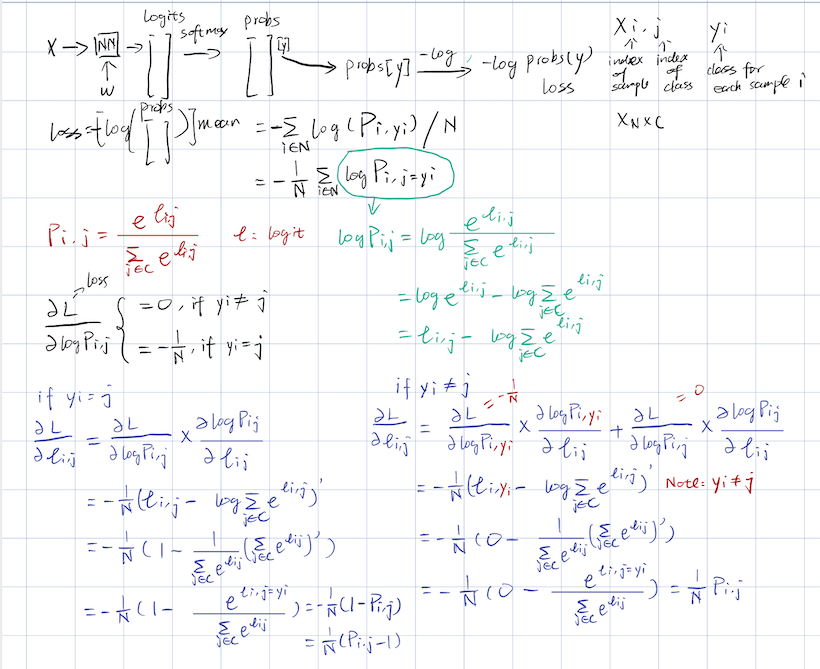 logits probs
X → NN → [ ] softmax → [ ] [y] → probs[y] -log → -log probs(y)
w loss
X i, j yi
index of sample index of class class for each sample i
X N×C
loss = -[log([probs])] mean = -∑ i∈N log(Pi,yi) / N
= -1/N ∑ i∈N log Pi,j=yi
Pi,j = e^li,j / ∑ j∈C e^li,j l: logit
log Pi,j = log e^li,j / ∑ j∈C e^li,j
= log e^li,j - log ∑ j∈C e^li,j
= li,j - log ∑ j∈C e^li,j
loss
∂L / ∂log Pi,j { = 0, if yi ≠ j
= -1/N, if yi = j
if yi = j
∂L/∂li,j = ∂L/∂log Pi,j × ∂log Pij/∂lij
= -1/N (li,j - log ∑ j∈C e^li,j)'
= -1/N (1 - 1/∑ j∈C e^lij (∑ j∈C e^lij)')
= -1/N (1 - e^li,j=yi / ∑ j∈C e^lij) = -1/N (1-Pi,j)
= 1/N (Pi,j-1)
if yi ≠ j
= -1/N = 0
∂L/∂li,j = ∂L/∂log Pi,yi × ∂log Pi,yi/∂lij + ∂L/∂log Pi,j × ∂log Pij/∂lij
= -1/N (li,yi - log ∑ j∈C e^li,j)' Note: yi ≠ j
= -1/N (0 - 1/∑ j∈C e^lij (∑ j∈C e^lij)')
= -1/N (0 - e^li,j=yi / ∑ j∈C e^lij) = 1/N Pi,j